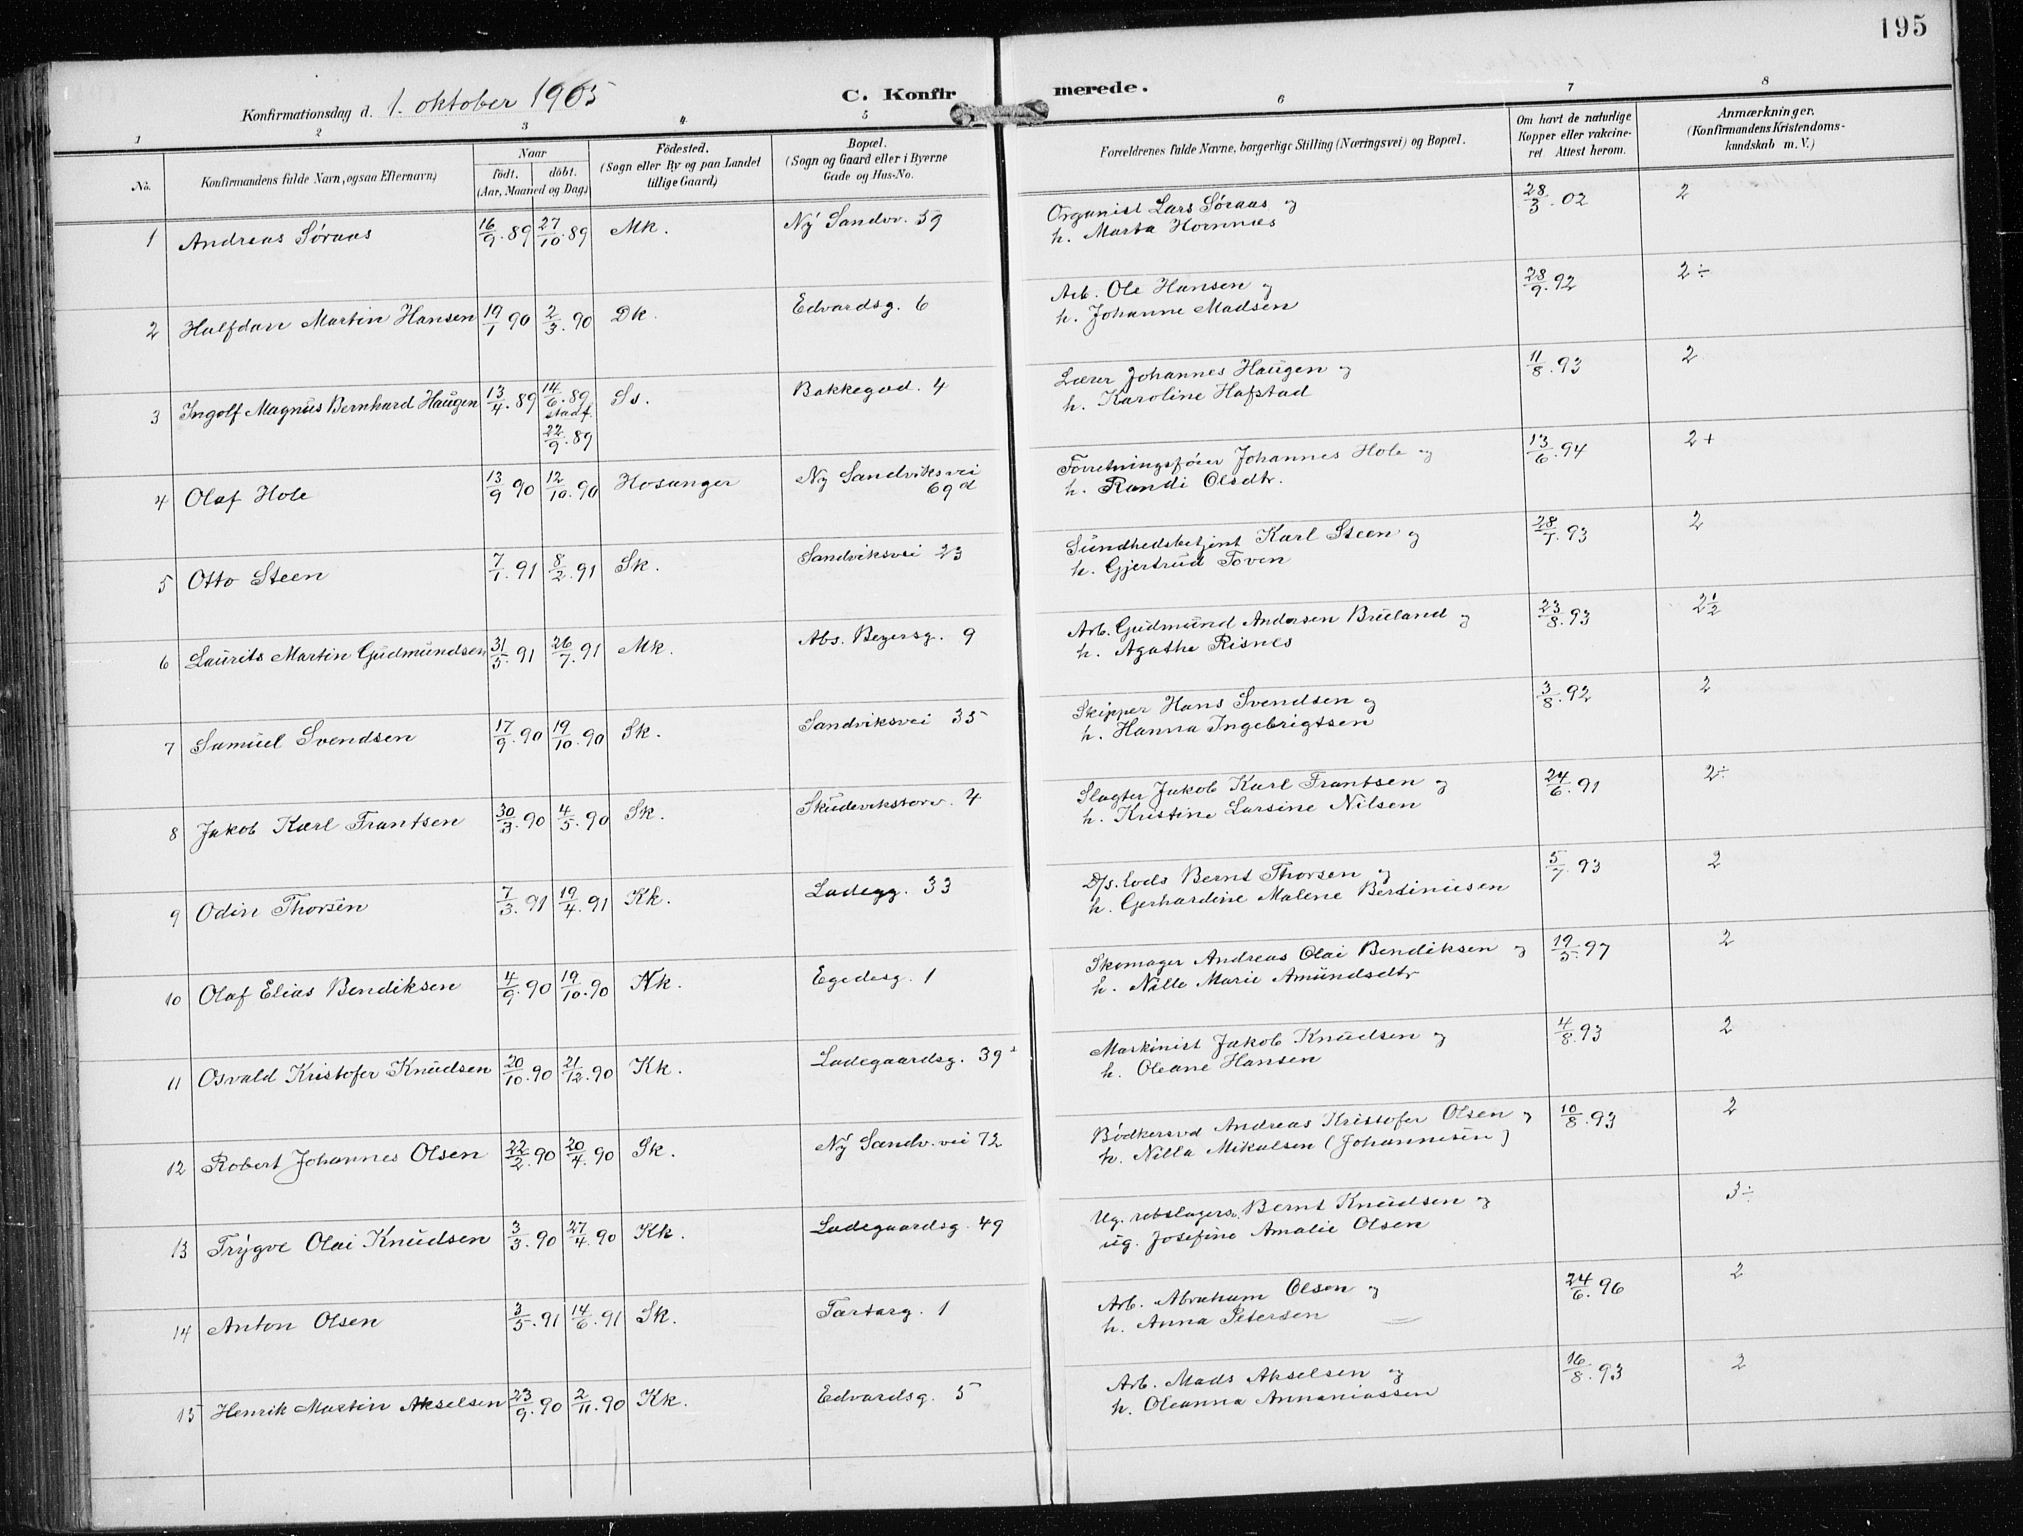 195
Konfirmationsdag d. 1. oktober 1905
C. Konfirmerede.
1 2 3 4. 5 6 7 8
No. Konfirmandens fulde Navn, ogsaa Efternavn) Naar födt. döbt. (Aar, Maaned og Dag) Födested. (Sogn eller By og paa Landet tillige Gaard) Bopæl. (Sogn og Gaard eller i Byerne Gade og Hus-No. Forældrenes fulde Navne, borgerlige Stilling (Næringsvei) og Bopæl. Om havt de naturlige Kopper eller vakcineret Attest herom. Anmærkninger. (Konfirmandens Kristendomskundskab m. V.)
1 Andreas Søraas 16/9.89 27/10.89 Mk. Ny Sandv. 59 Organist Lars Søraas og 28/3.02 2
h. Marta Hornnæs
2 Halfdan Martin Hansen 19/1 90 2/3.90 Dk. Edvardsg. 6 Arb. Ole Hansen og 28/9.92 2÷
h. Johanne Madsen
3 Ingolf Magnus Bernhard Haugen 13/4.89 14/6.89 stadf. 22/9.89 Ss. Bakkegad. 4 Lærer Johannes Haugen og 11/8.93 2
h. Karoline Hafstad
4 Olaf Hole 13/9 90 12/10.90 Hosanger Ny Sandviksvei 69d Forretningsfører Johannes Hole og 13/6.94 2+
h. Randi Olsdtr.
5 Otto Steen 7/1.91 8/2.91 Sk. Sandviksvei 23 Sundhedsbetjent Karl Steen og 28/7.93 2
h. Gjertrud Toven
6 Laurits Martin Gudmundsen 31/5.91 26/7.91 Mk. Abs. Beyersg. 9 Arb. Gudmund Andersen Brueland og 23/8.93 2½
h. Agathe Risnes
7 Samuel Svendsen 17/9.90 19/10.90 Sk. Sandviksvei 35 Skipper Hans Svendsen og 3/8.92 2
h. Hanna Ingebrigtsen
8 Jakob Karl Frantsen 30/3.90 4/5.90 Sk. Skudevikstorv. 4 Slagter Jakob Karl Frantsen og 24/6.91 2÷
h. Kristine Larsine Nilsen
9 Odin Thorsen 7/3.91 19/4.91 Kk. Ladegg. 33 D/s. lods Bernt Thorsen og 5/7.93 2
h. Gerhardine Malene Bertinusen
10 Olaf Elias Bendiksen 4/9.90 19/10.90 Nk. Egedesg. 1 Skomager Andreas Olai Bendiksen og 19/5.97 2
h. Nille Marie Amundsdtr
11 Osvald Kristofer Knudsen 20/10.90 21/12.90 Kk. Ladegaardsg. 39 Maskinist Jakob Knudsen og 4/8.93 2
h. Oleane Hansen
12 Robert Johannes Olsen 22/2.90 20/4.90 Sk. Ny Sandv. vei 72 Bødkersvd Andreas Kristofer Olsen og 10/8.93 2
h. Nilla Mikalsen (Johannesen)
13 Trygve Olai Knudsen 3/3.90 27/4.90 Kk. Ladegaardsg. 49 Ug. rebslagersv. Bernt Knudsen og 3÷
ug. Josefine Amalie Olsen
14 Anton Olsen 3/5.91 14/6.91 Sk. Tartarg. 1 Arb. Abraham Olsen og 24/6.96 2
h. Anna Petersen
15 Henrik Martin Akselsen 23/9.90 2/11.90 Kk. Edvardsg. 5 Arb. Mads Akselsen og 16/8.93 2
h. Oleanna Annaniassen